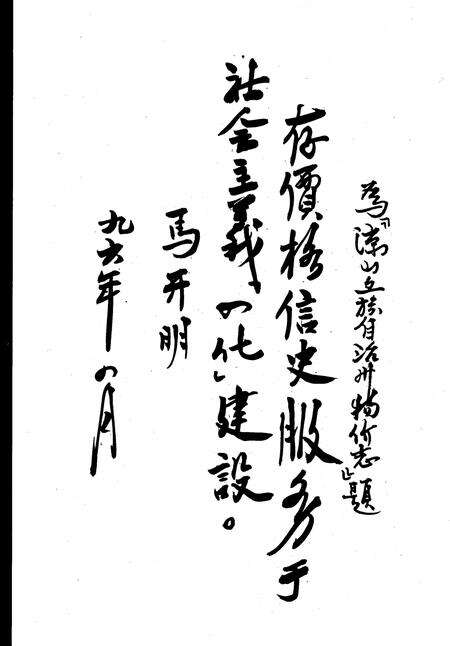 為『凉山彝族自治州物价志』題
存價格信史服务于
社会主義「四化」建設。
馬开明
九六年四月